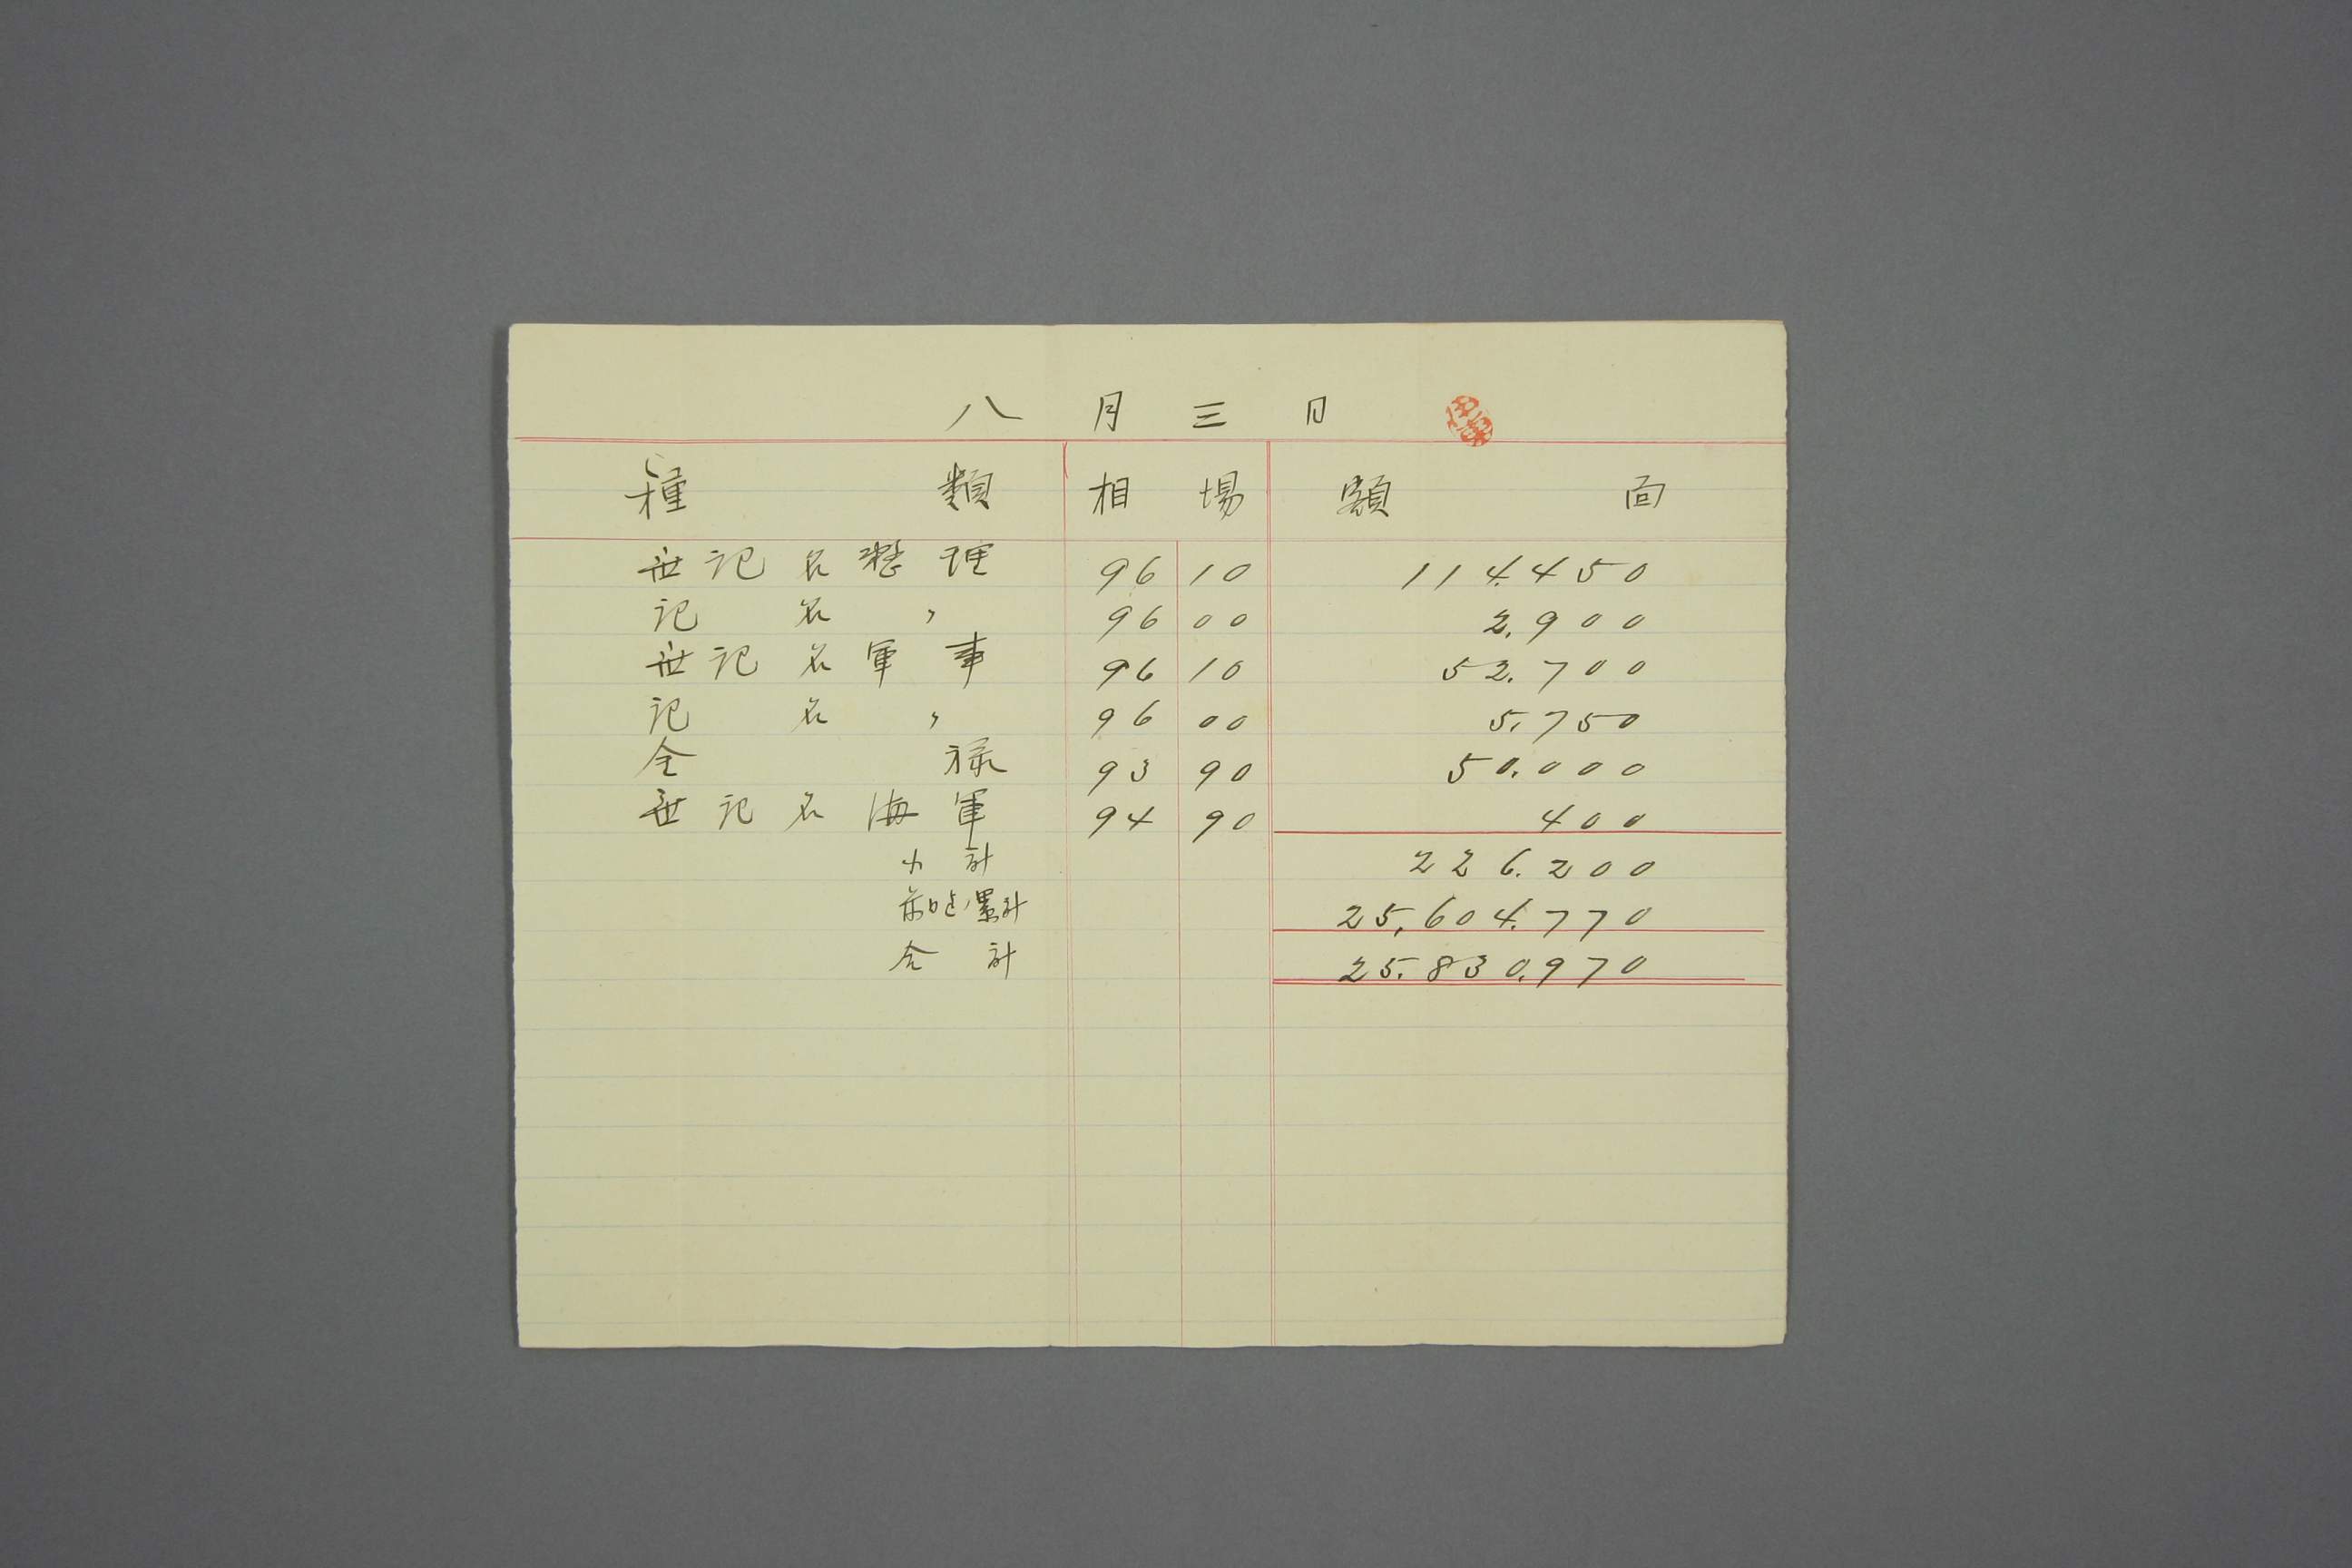 八月三日
種類 相場 額面
無記名整理 96 10 114.450
記名〃 96 00 2.900
無記名軍事 96 10 52.700
記名〃 96 00 5.750
金禄 93 90 50.000
無記名海軍 94 90 400
小計 226.200
前日迄ノ累計 25,604.770
合計 25.830.970